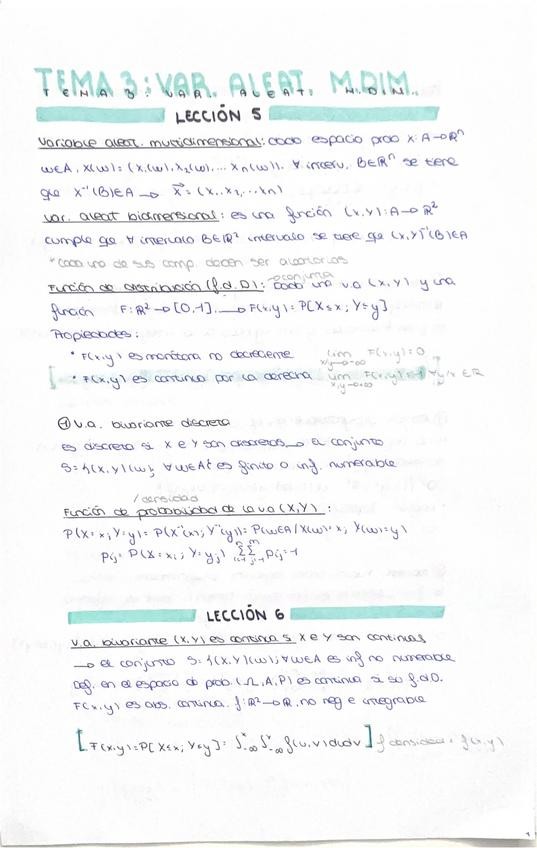 TEMA 3: VAR. ALEAT. M.DIM.
LECCIÓN 5
Variable aleat. multidimensional: dado espacio prob X: A→ℝⁿ
w∈A, X(w) = (X₁(w), X₂(w),... Xn(w)). ∀ interv. B∈ℝⁿ se tiene
que X⁻¹(B)∈A → X⃗ = (X₁, X₂,... Xn)
Var. aleat bidimensional: es una función (X,Y): A→ℝ²
cumple qe ∀ intervalo B∈ℝ² intervalo se tiene qe (X,Y)⁻¹(B)∈A
*cada uno de sus comp. deben ser aleatorias
conjunta
Función de distribución (f.d.D): dado una v.a (X,Y) y una
función F: ℝ² → [0,1] → F(x,y) = P[X≤x; Y≤y]
Propiedades:
• F(x,y) es monótona no decreciente lim x,y→-∞ F(x,y) = 0
• F(x,y) es continua por la derecha lim x,y→+∞ F(x,y) = 1 ∀x,y ∈ℝ
① v.a. bivariante discreta
es discreta si X e Y son discretas → el conjunto
S = {(X,Y)(w); ∀w∈A} es finito o inf. numerable
/densidad
Función de probabilidad de la va (X,Y):
P(X=x; Y=y) = P(X⁻¹(x); Y⁻¹(y)) = P(w∈A/X(w)=x; Y(w)=y)
Pij = P(X=xi; Y=yj) Σⁿᵢ₌₁ Σᵐⱼ₌₁ Pij = 1
LECCIÓN 6
v.a. bivariante (X,Y) es continua si X e Y son continuas
→ el conjunto S = {(X,Y)(w); ∀w∈A es inf no numerable
Def. en el espacio de prob. (Ω,A,P) es continua si su f.d.D.
F(x,y) es abs. continua. f: ℝ²→ℝ. no neg e integrable
[F(x,y) = P[X≤x, Y≤y] = ∫ˣ₋∞ ∫ʸ₋∞ f(u,v) dudv] f densidad = f(x,y)